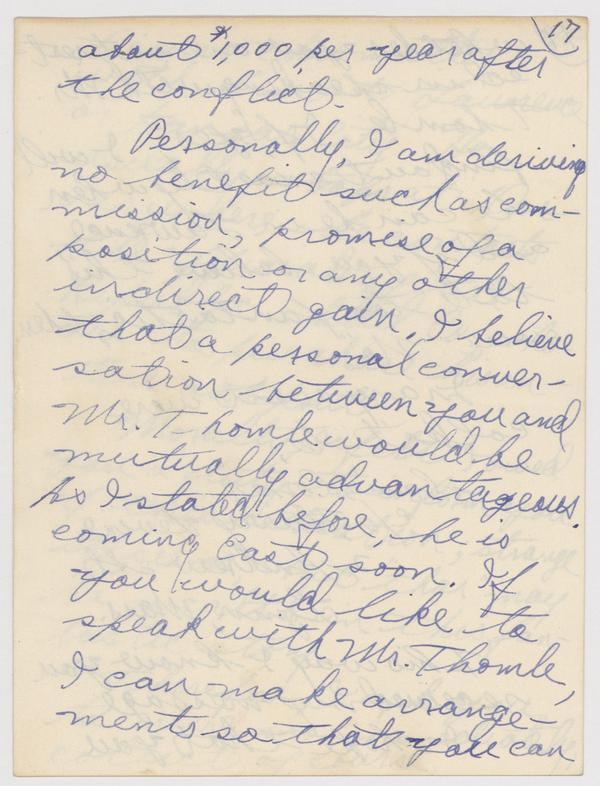 17
about $1,000 per year after
the conflict.
Personally, I am deriving
no benefit such as com-
mission, promise of a
position or any other
indirect gain. I believe
that a personal conver-
sation between you and
Mr. Thomle would be
mutually advantageous.
As I stated before, he is
coming East soon. If
you would like to
speak with Mr. Thomle,
I can make arrange-
ments so that you can